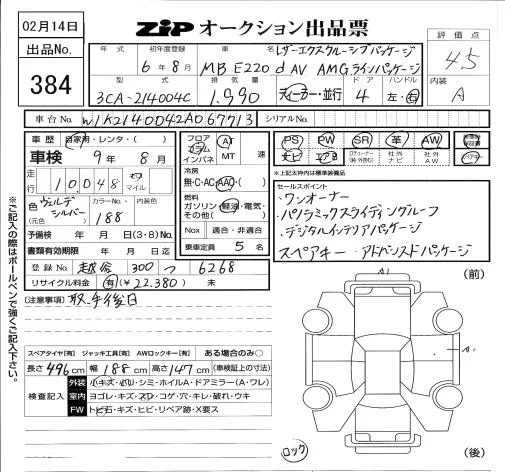 02月14日
ZIP オークション出品票
出品No.
384
年式 初年度登録 車名 レザーエクスクルーシブパッケージ
6年8月 MB E220 d AV AMGラインパッケージ
評価点
4.5
型式 排気量 ドア ハンドル
3CA-214004C 1,990 ディーラー・並行 4 左・右
内装
A
車台No. W1K2140042A067713 シリアルNo.
車歴 自家用・レンタ・( )
車検 9年8月
走行 10,048 キロ マイル
色 ヴェルデシルバー カラーNo. 188 内装色
(元色)
予備検 年 月 日(3・8)No.
書類有効期限 年 月 日迄
登録No. 越谷 300 つ 6268
リサイクル料金 有(¥22,380) 未
フロア コラム インパネ AT MT 速
冷房
無・C・AC・AAC・( )
燃料
ガソリン・軽油・電気・その他( )
Nox 適合・非適合
乗車定員 5名
PS PW SR 革 AW
ナビ エアB 社外ナビ 社外AW
スペアキー
*上記太枠内は標準装備品
セールスポイント
・ワンオーナー
・パノラミックスライディングルーフ
・デジタルインテリアパッケージ
スペアキー ・アドバンスドパッケージ
[注意事項] 取、手後日
スペアタイヤ[有] ジャッキ工具[有] AWロックキー[有] ある場合のみ○
長さ 496cm 幅 188cm 高さ 147cm (車検証上の寸法)
検査記入
外装 小キズ・凹・シミ・ホイルA・ドアミラー(A・ワレ)
室内 ヨゴレ・キズ・スレ・コゲ・穴・キレ・破れ・ウキ
FW トビ石・キズ・ヒビ・リペア跡・X要ス
※ご記入の際はボールペンで強くご記入下さい。
A1
(前)
A1
ロック
(後)